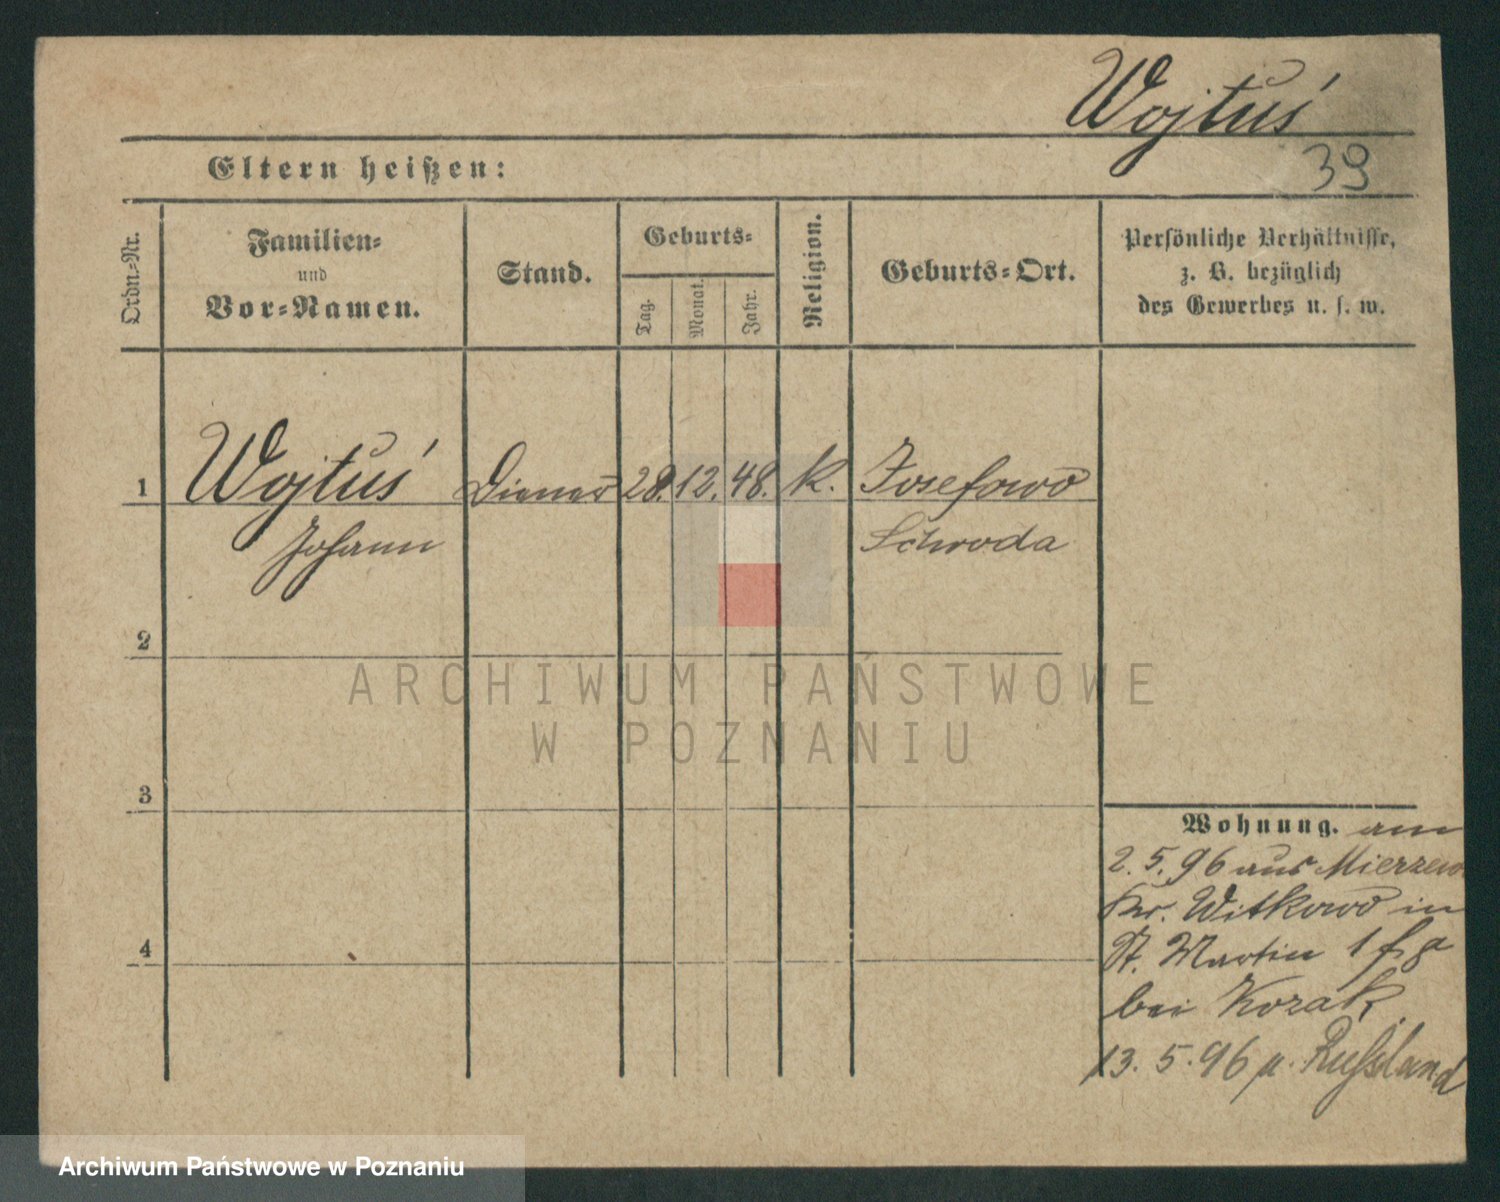 Wojtuś
39
Eltern heißen:
Ordn.-Nr.
Familien-
und
Vor-Namen.
Stand.
Geburts-
Tag.
Monat.
Jahr.
Religion.
Geburts-Ort.
Persönliche Verhältnisse,
z. B. bezüglich
des Gewerbes u. s. w.
1 Wojtuś Diener 28. 12. 48. k. Josefowo
Johann Schroda
2
3
4
Wohnung. am
2. 5. 96 aus Mierzewo
Kr. Witkowo in
St. Martin 1
bei Kozak
13. 5. 96 n. Russland
ARCHIWUM PAŃSTWOWE
W POZNANIU
Archiwum Państwowe w Poznaniu